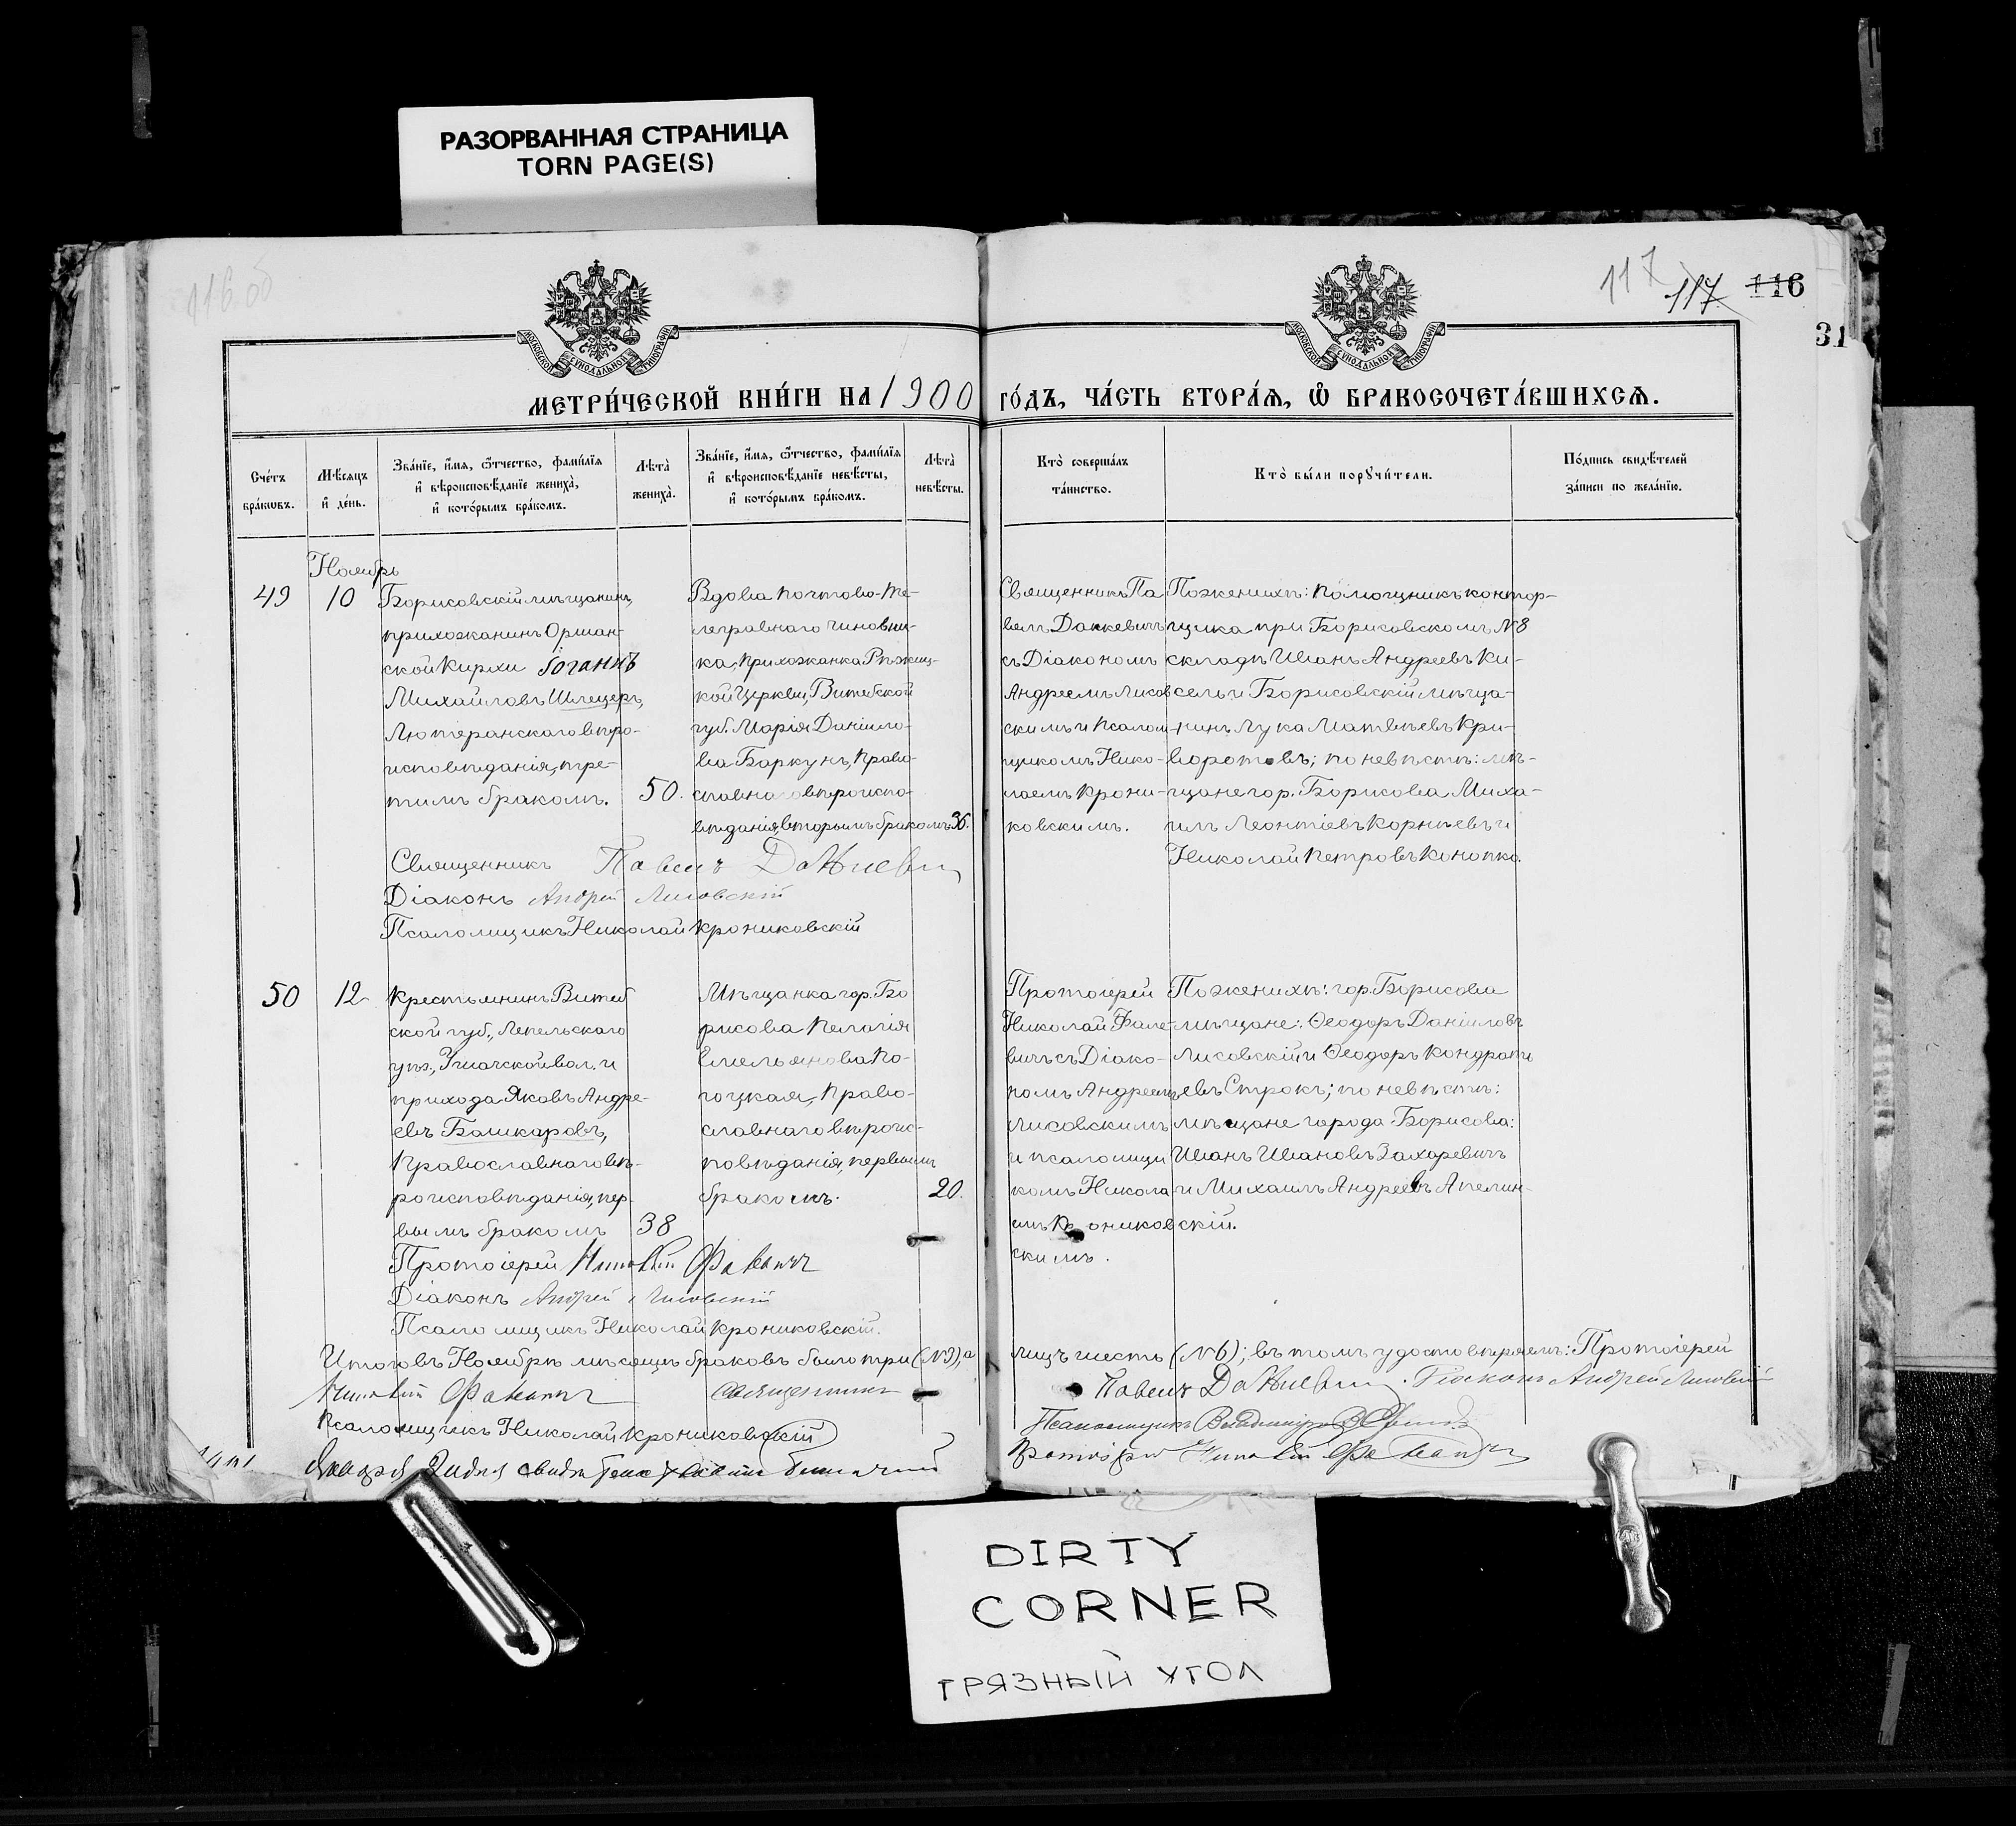 РАЗОРВАННАЯ СТРАНИЦА
TORN PAGE(S)
116 об
117
117
116
31
МОСКОВСКОЙ СѴНОДАЛЬНОЙ ТИПОГРАФІИ
МОСКОВСКОЙ СѴНОДАЛЬНОЙ ТИПОГРАФІИ
МЕТРИ́ЧЕСКОЙ КНИ́ГИ НА 1900 ГО́ДЪ, ЧА́СТЬ ВТОРА́Я, Ѽ БРАКОСОЧЕТА́ВШИХСЯ.
Сче́тъ бра́ковъ.
Мѣ́сяцъ и҆ де́нь.
Зва́нїе, и҆́мя, ѻ҆́тчество, фами́лїя
и҆ вѣроисповѣ́данїе жениха̀,
и҆ кото́рымъ бра́комъ.
Лѣта̀ жениха̀.
Зва́нїе, и҆́мя, ѻ҆́тчество, фами́лїя
и҆ вѣроисповѣ́данїе невѣ́сты,
и҆ кото́рымъ бра́комъ.
Лѣта̀ невѣ́сты.
Кто̀ соверша́лъ та́инство.
Кто̀ бы́ли порꙋчи́тели.
По́дпись свидѣ́телей за́писи по жела́нїю.
Ноябрь
49
10
Борисовскій мѣщанинъ,
прихожанинъ Оршан-
ской Кирхи Іоганнъ
Михайловъ Шлецеръ,
Лютеранскаго вѣро-
исповѣданія, тре-
тимъ бракомъ.
50.
Вдова почтово-те-
леграфнаго чиновни-
ка, прихожанка Рѣжиц-
кой Церкви, Витебской
губ. Марія Даніило-
ва Баркунъ, Право-
славнаго вѣроиспо-
вѣданія, вторымъ бракомъ
36.
Священникъ Па
велъ Дакевичъ
съ Діакономъ
Андреемъ Лисов
скимъ и Псалом-
щикомъ Нико-
лаемъ Крони-
ковскимъ.
По женихѣ: помощникъ контор-
щика при Борисовскомъ №8
складѣ Иванъ Андреевъ Ки-
сель и Борисовскій мѣща-
нинъ Лука Матвѣевъ Кри-
воротовъ; по невѣстѣ: мѣ-
щане гор. Борисова Миха-
илъ Леонтіевъ Корнѣевъ и
Николай Петровъ Конопко.
Священникъ Павелъ Даккевичъ
Діаконъ Андрей Лисовскій
Псаломщикъ Николай Крониковскій
50
12
Крестьянинъ Витеб
ской губ., Лепельскаго
уѣз., Ушачской вол. и
прихода Яковъ Андре-
евъ Башкаровъ,
Православнаго вѣ-
роисповѣданія, пер-
вымъ бракомъ
38
Мѣщанка гор. Бо
рисова Пелагія
Емельянова По-
лоцкая, Право-
славнаго вѣроис-
повѣданія, первымъ
бракомъ.
20.
Протоіерей
Николай Фале-
вичъ съ Діако-
номъ Андреемъ
Лисовскимъ
и псаломщи
комъ Никола-
емъ Кроников
скимъ.
По женихѣ: гор. Борисова
мѣщане: Ѳеодоръ Даніиловъ
Лисовскій и Ѳеодоръ Кондрать
евъ Строкъ; по невѣстѣ:
мѣщане города Борисова:
Иванъ Ивановъ Захаревичъ
и Михаилъ Андреевъ Апелин-
скій.
Протоіерей Николай Фалевичъ
Діаконъ Андрей Лисовскій
Псаломщикъ Николай Крониковскій.
Итого въ Ноябрѣ мѣсяцѣ браковъ было три (№3), а лицъ шесть (№6); въ томъ удостовѣряемъ: Протоіерей
Николай Фалевичъ Священникъ Павелъ Даккевичъ. Діаконъ Андрей Лисовскій
Псаломщикъ Николай Крониковскій Псаломщикъ Владиміръ
Протоіерей Николай Фалевичъ
DIRTY
CORNER
ГРЯЗНЫЙ УГОЛ